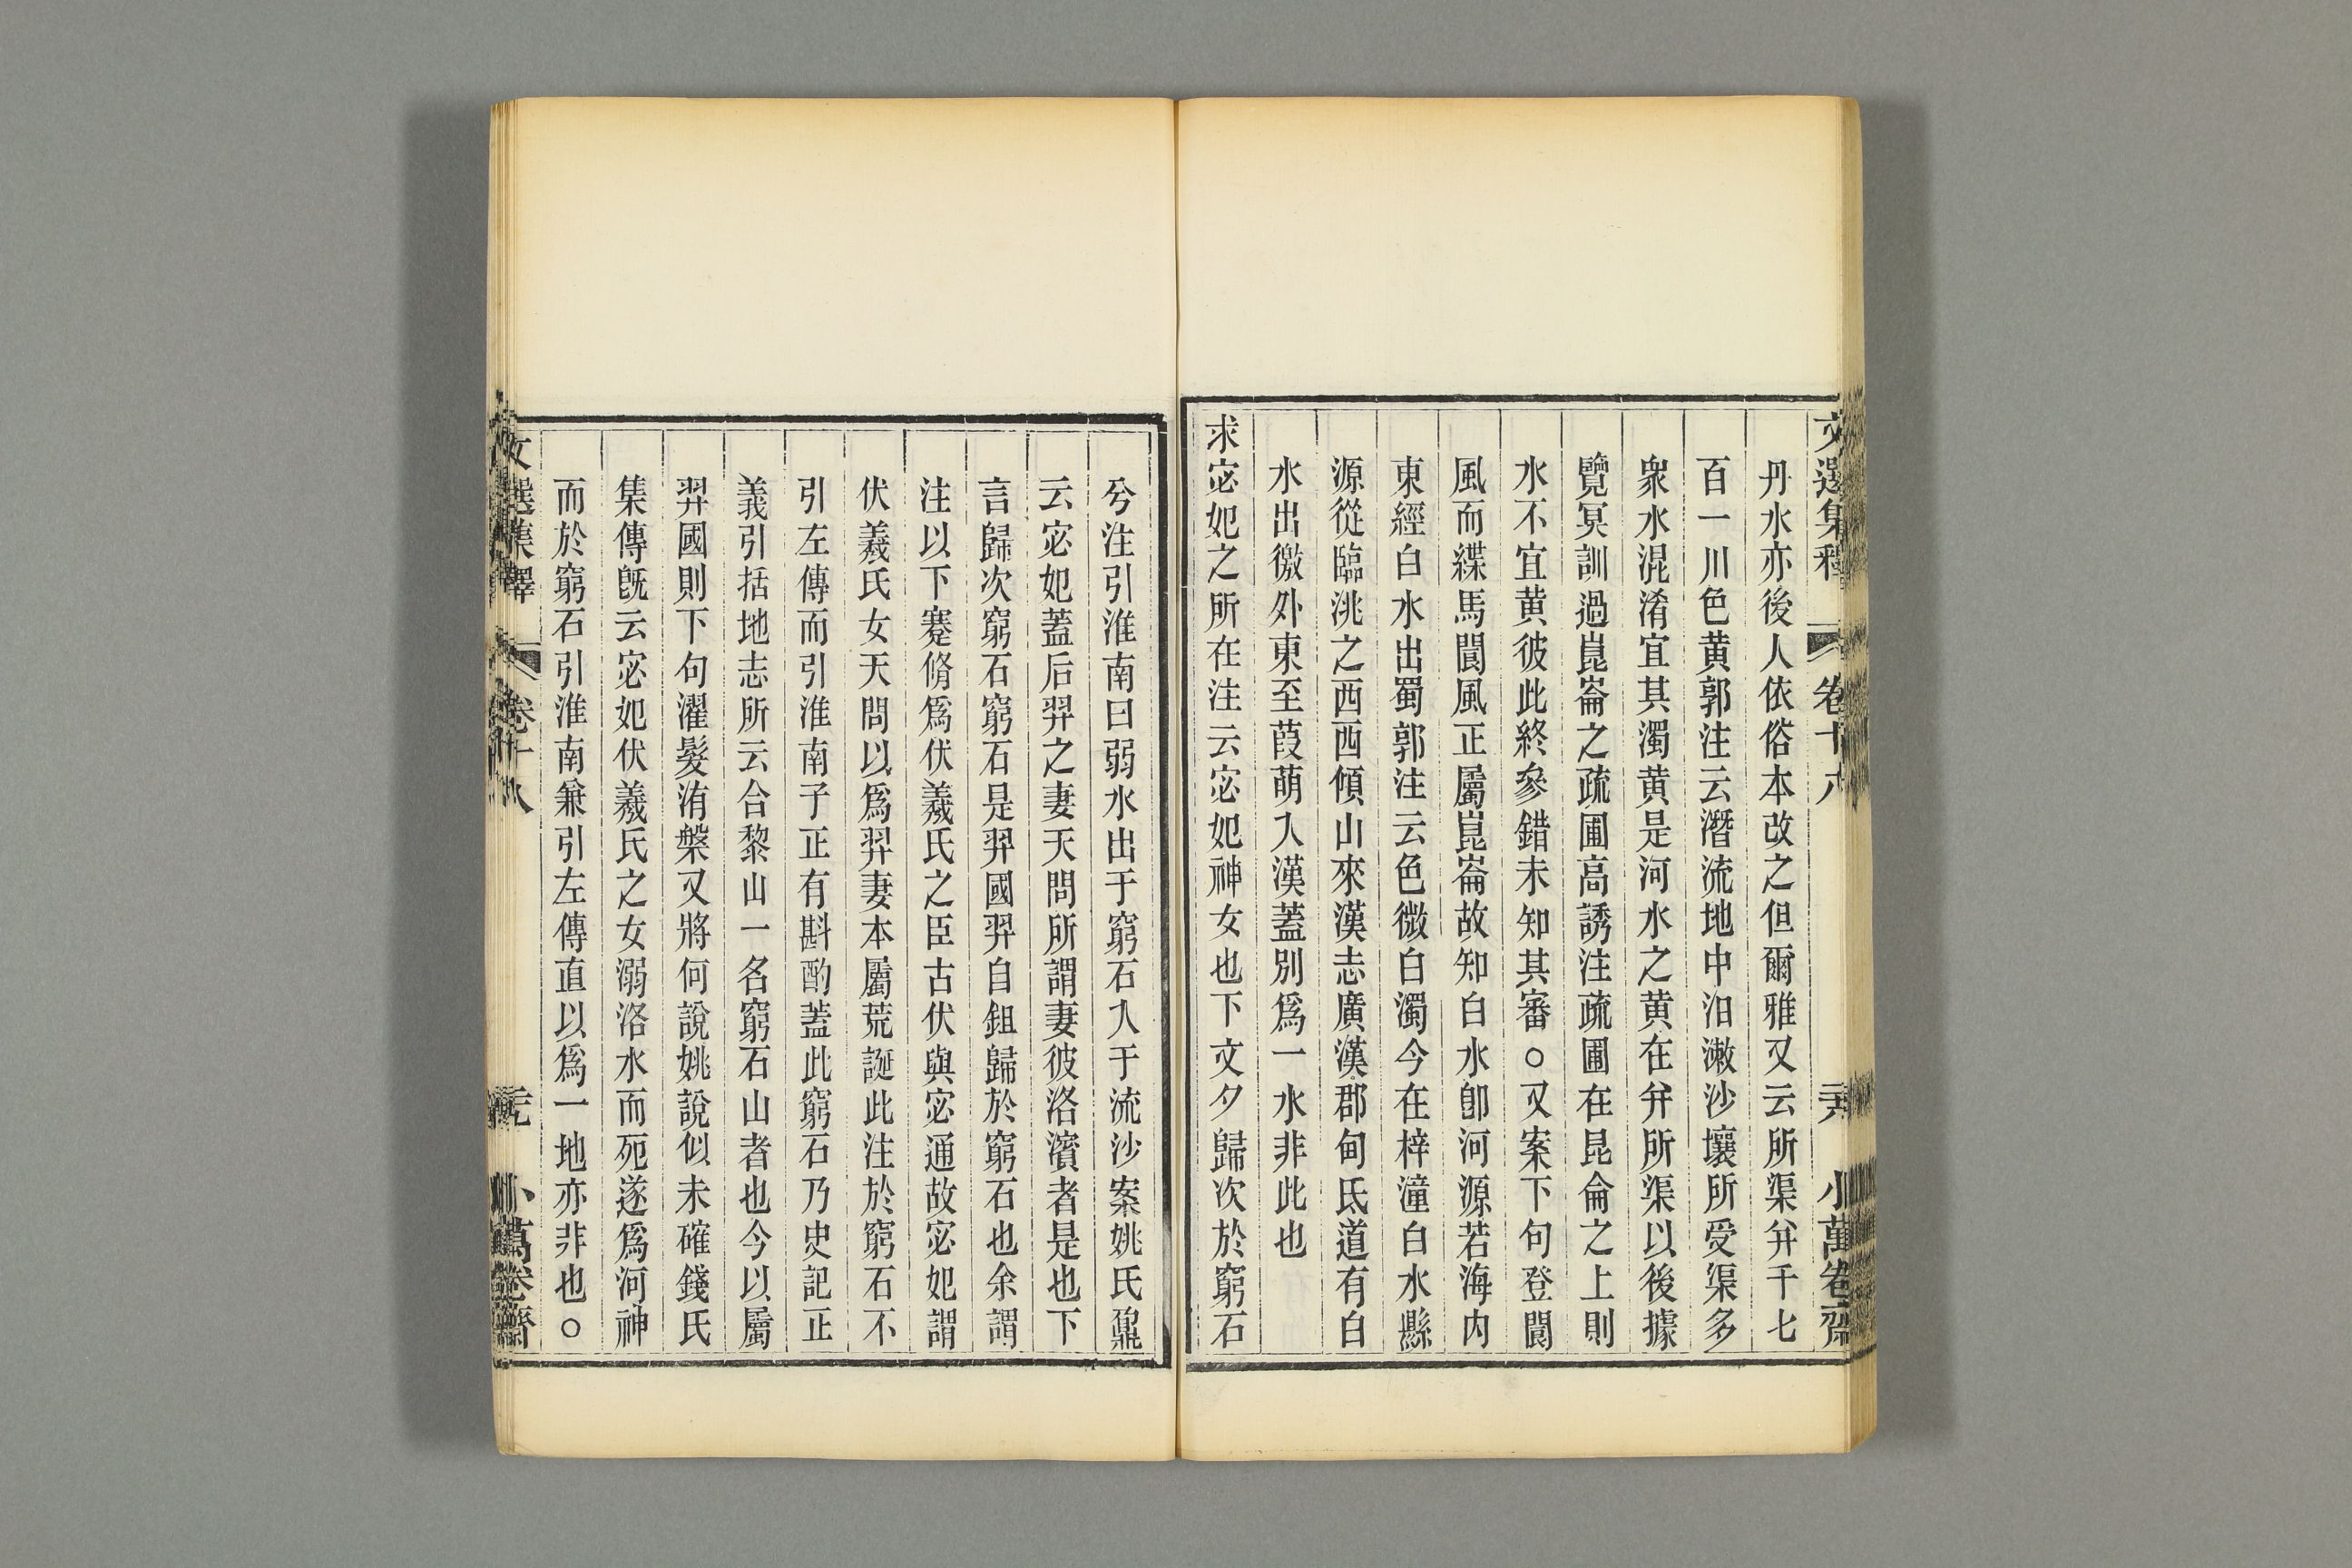 文選集釋 卷十八 小萬卷齋
丹水亦後人依俗本改之但爾雅又云所渠并千七
百一川色黄郭注云潛流地中汨漱沙壤所受渠多
衆水混淆宜其濁黄是河水之黄在并所渠以後據
覽冥訓過崑崙之疏圃高誘注疏圃在昆侖之上則
水不宜黄彼此終參錯未知其審○又案下句登閬
風而緤馬閬風正屬崑崙故知白水卽河源若海内
東經白水出蜀郭注云色微白濁今在梓潼白水縣
源從臨洮之西西傾山來漢志廣漢郡甸氐道有白
水出徼外東至葭萌入漢蓋別爲一水非此也
求宓妃之所在注云宓妃神女也下文夕歸次於窮石
兮注引淮南曰弱水出于窮石入于流沙案姚氏鼐
云宓妃蓋后羿之妻天問所謂妻彼洛濱者是也下
言歸次窮石窮石是羿國羿自鉏歸於窮石也余謂
注以下蹇脩爲伏羲氏之臣古伏與宓通故宓妃謂
伏羲氏女天問以爲羿妻本屬荒誕此注於窮石不
引左傳而引淮南子正有斟酌蓋此窮石乃史記正
義引括地志所云合黎山一名窮石山者也今以屬
羿國則下句濯髮洧槃又將何說姚說似未確錢氏
集傳旣云宓妃伏羲氏之女溺洛水而死遂爲河神
而於窮石引淮南兼引左傳直以爲一地亦非也○
文選集釋 卷十八 小萬卷齋